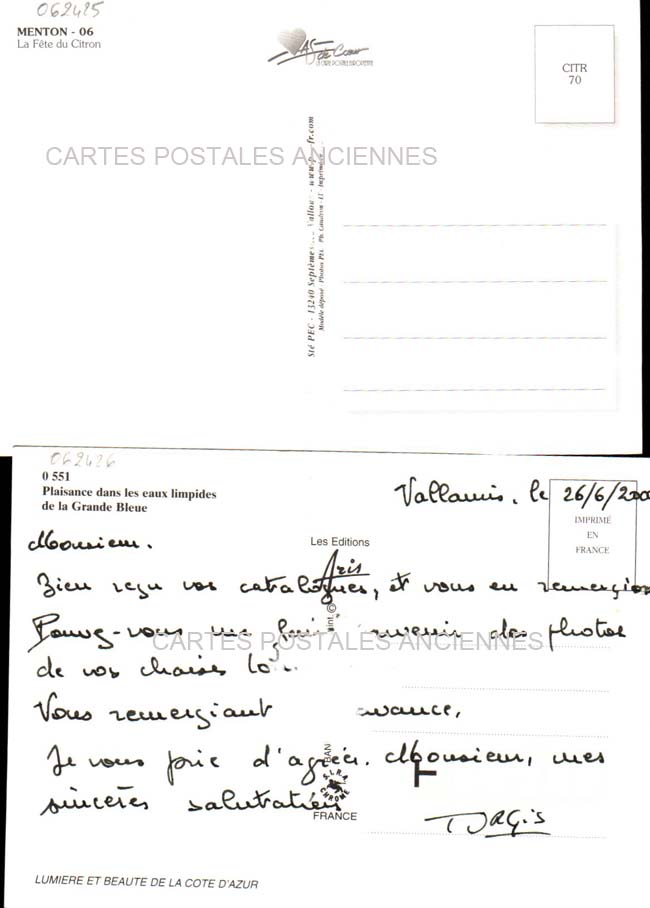 062425
MENTON - 06
La Fête du Citron
AS de Cœur
LA CARTE POSTALE EUROPEENNE
CITR
70
CARTES POSTALES ANCIENNES
Sté PEC - 13240 Septèmes
Modèle déposé - Photos PIX
062426
0 551
Plaisance dans les eaux limpides
de la Grande Bleue
Vallauris, le 26/6/2000
IMPRIMÉ
EN
FRANCE
Monsieur.
Les Editions
Aris
Bien reçu vos catalogues, et vous en remergions
Pouvez-vous me faire des photos
CARTES POSTALES ANCIENNES
de vos chaises
Vous remergiant avance,
Je vous prie d'agréer. Monsieur, mes
sincères salutations
FRANCE
LUMIERE ET BEAUTE DE LA COTE D'AZUR